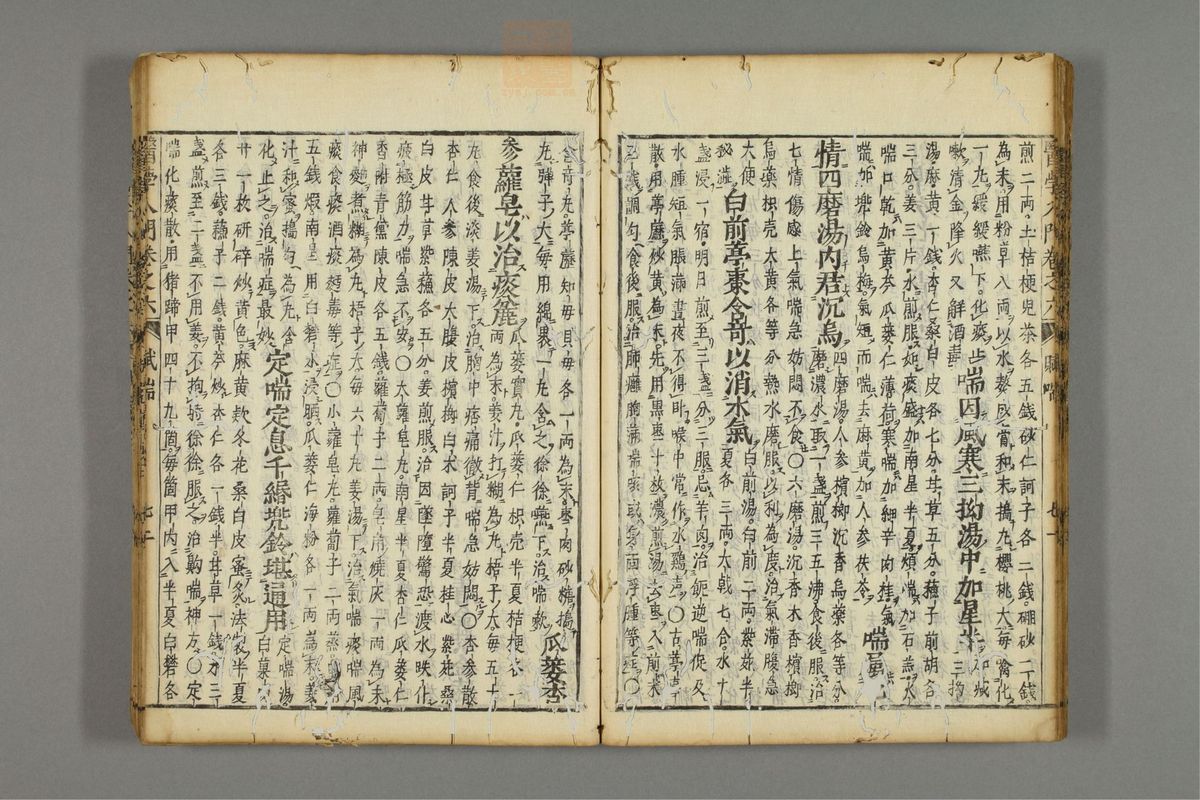 煎二兩土桔梗兒茶各五錢砂仁訶子各二錢硼砂二錢
為末用粉草八兩以水熬成膏和末搗丸櫻桃大每噙化
一丸緩緩嚥下化痰止嗽清金降火又解酒毒
喘因風寒三拗湯中加星半
三拗湯麻黃一錢杏仁桑白皮各七分甘草五分蘇子前胡各
三分姜三片水煎服如痰盛加南星半夏煩喘加石羔火
喘口乾加黃芩瓜蔞仁薄荷寒喘加細辛肉桂氣
喘加兜鈴烏梅氣短而喘去麻黃加人參茯苓
喘屬
情四磨湯內君沉烏
四磨湯人參檳榔沉香烏藥各等分
磨濃水取一盞煎三五沸食後服治
七情傷感上氣喘急妨悶不食〇六磨湯沉香木香檳榔
烏藥枳壳大黃各等分熱水磨服以利為度治氣滯腹急
大便秘澁
白前葶棗令奇以消水氣
白前湯白前二兩紫菀半
夏各三兩大戟七合水十
盞浸一宿明日煎至三盞分三服忌羊肉治㽲逆喘促及
水腫短氣脹滿晝夜不得卧喉中常作水鷄聲〇古葶棗
散用葶藶炒黃為末先用黑棗十枚濃煎湯去棗入前末
食後服治肺癰胸滿喘咳或身面浮腫等症〇
含奇丸葶藶知母貝母各一兩為末棗肉砂糖搗
丸彈子大每用綿裹一丸含之徐徐嚥下治喘嗽
瓜蔞杏
參蘿皂以治痰麄
瓜蔞實丸瓜蔞仁枳壳半夏桔梗各一
兩為末姜汁打糊為丸梧子大每五十
丸食後淡姜湯下治胸中痞痛徹背喘急妨悶〇杏參散
杏仁人參陳皮大腹皮檳榔白朮訶子半夏桂心紫菀桑
白皮甘草紫蘇各五分姜煎服治因墜墮驚恐渡水跌仆
疲極筋力喘急不安〇大蘿皂丸南星半夏杏仁瓜蔞仁
香附青儻陳皮各五錢蘿蔔子二兩皂角燒灰一兩為末
神麴煮糊為丸梧子大每六十丸姜湯下治氣喘痰喘風
痰食痰酒痰麵毒等症〇小蘿皂丸蘿蔔子二兩蒸
五錢煅南星用白礬水浸晒瓜蔞仁海粉各一兩為末姜
汁和蜜搗勻為丸含化止之治喘症最妙
定喘定息千緡兜鈴堪通用
定喘湯
白菓
廿一枚研碎炒黃色麻黃欵冬花桑白皮蜜炙法製半夏
各三錢蘇子二錢黃芩炒杏仁各一錢半甘草一錢水三
盞煎至二盞不用姜不拘時徐徐服之治齁喘神方〇定
喘化痰散用猪蹄甲四十九箇每箇甲內入半夏白礬各